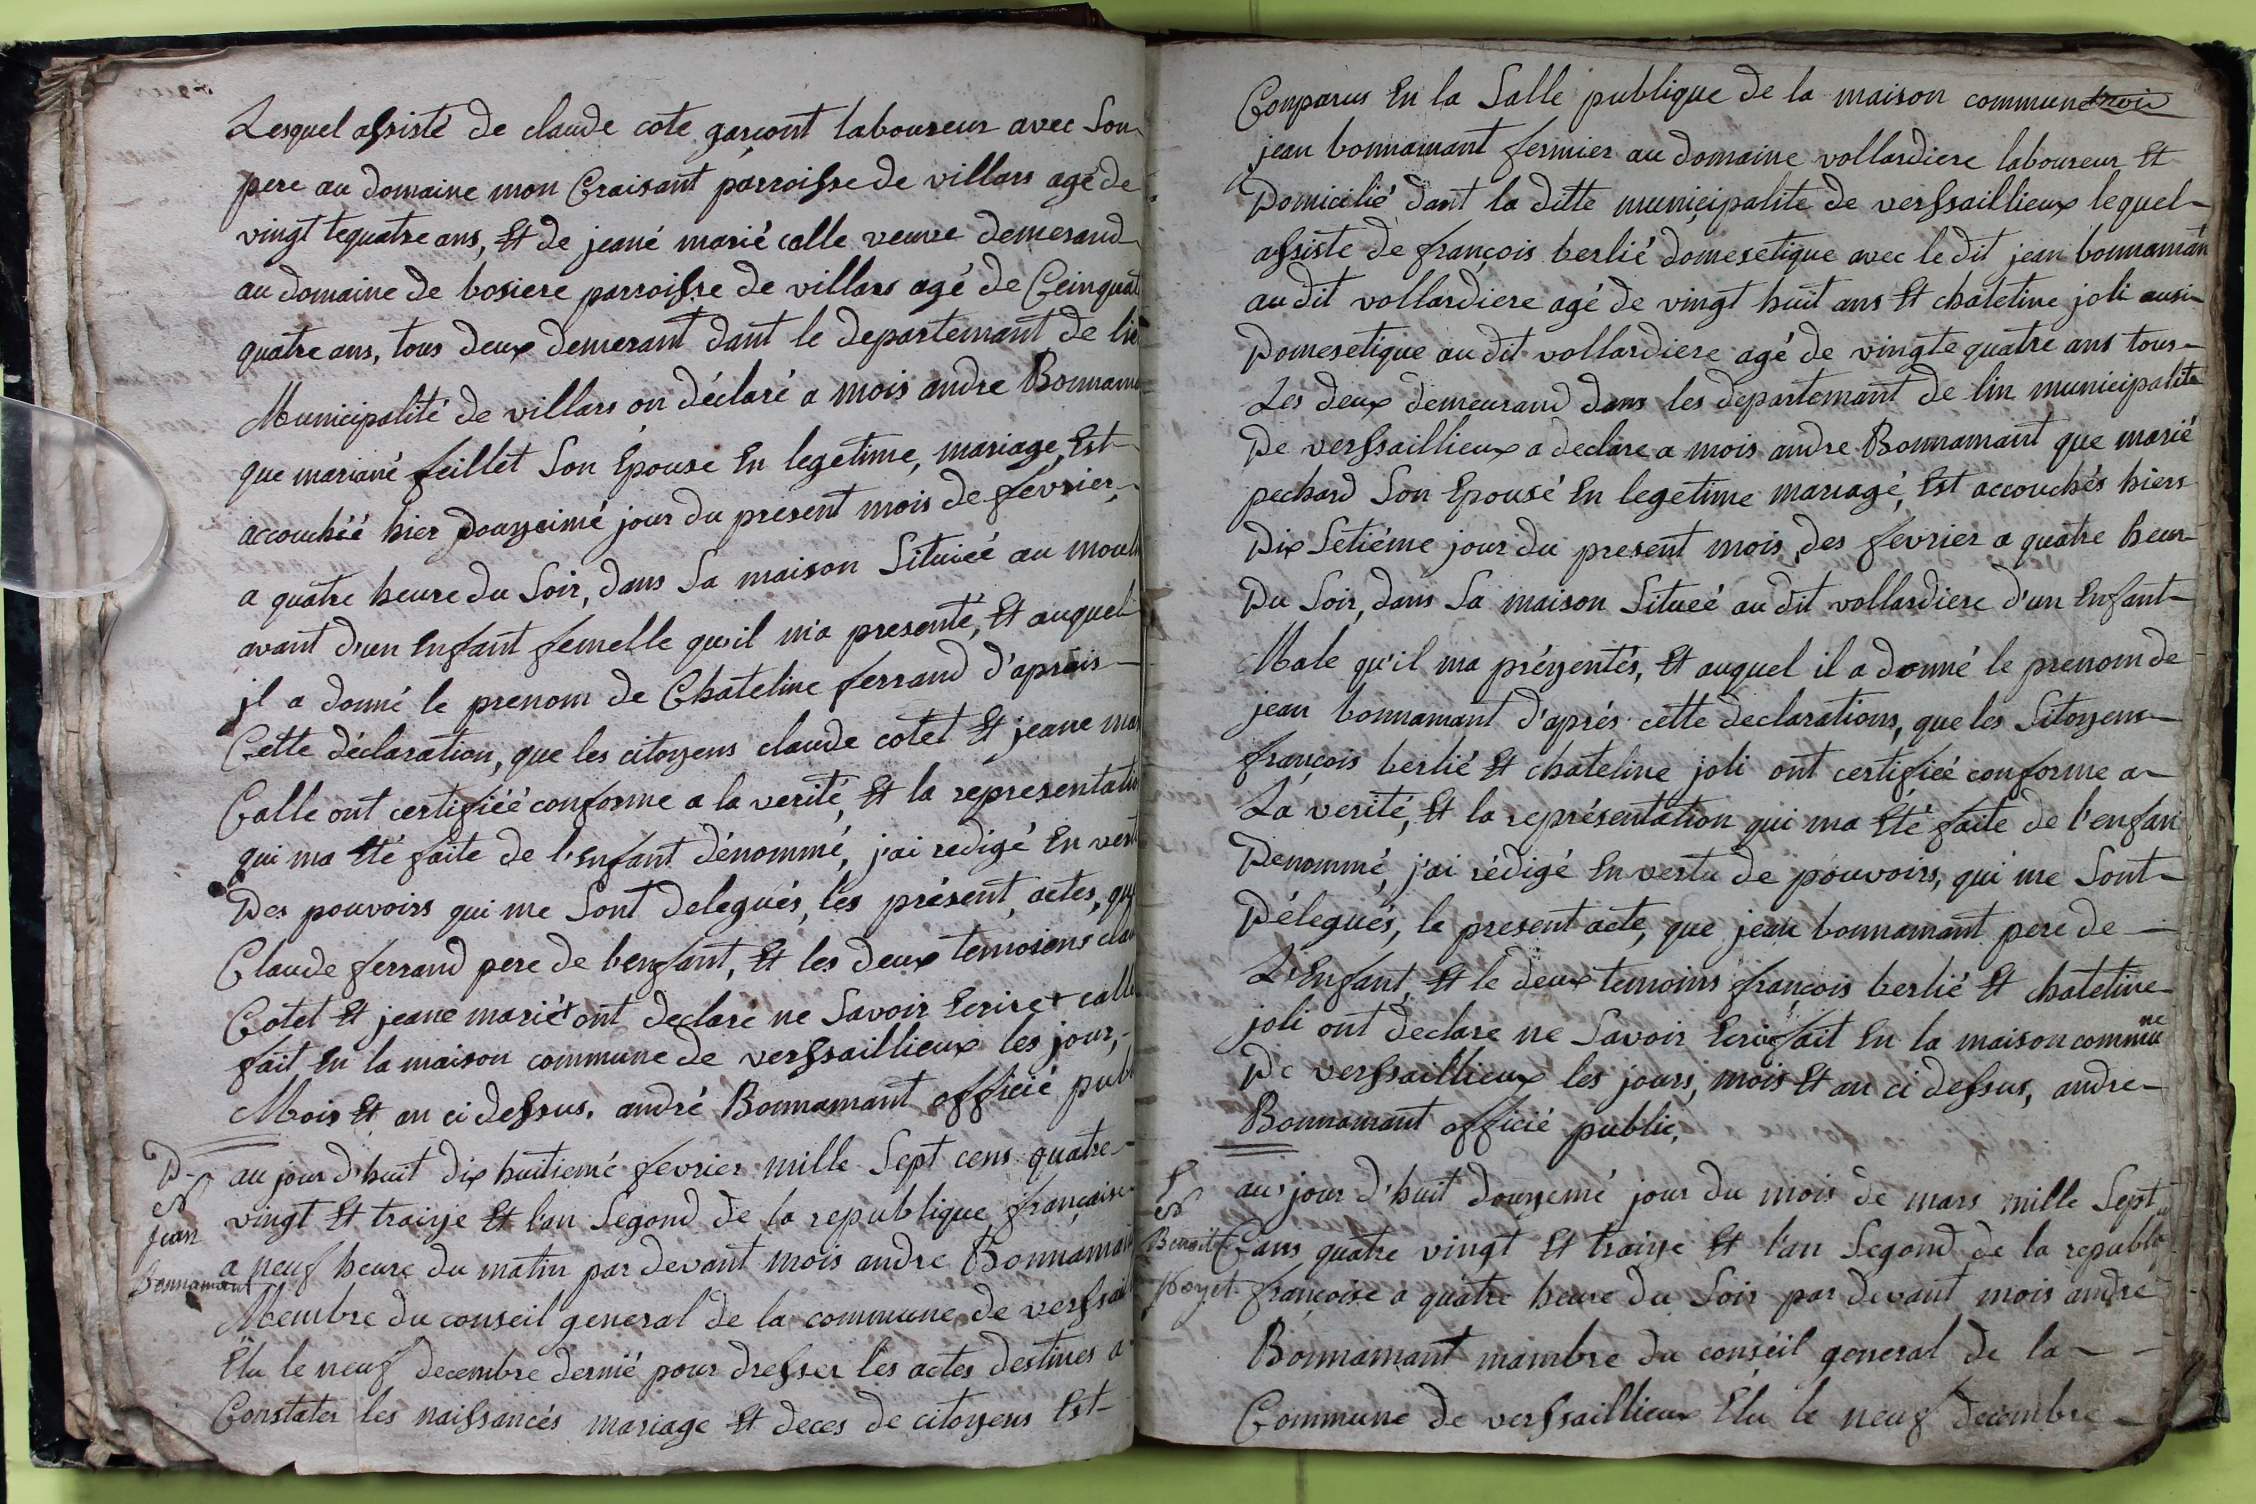 Lesquel assisté de claude cote garçont laboureur avec Son
pere au domaine mon Craisant parroisse de villars agé de
vingt tequatre ans, Et de jeané marié calle veuve demerand
au domaine de bosiere parroisse de villars agé de Ceinquat
quatre ans, tous deux demerant dant le departemant de lin
Municipalité de villars on déclaré a mois andre Bonnama
que mariané feillet Son Epouse En legetime, mariage, Est
accouchéé hier douzeimé jour du present mois de fevrier,
a quatre heure du Soir, dans Sa maison Situéé au moul
avant d'un Enfant femelle qu'il m'a presenté, Et auquel
il a donné le prenom de Chateline ferrand d'aprais
Cette déclaration, que les citoyens claude cotet Et jeane ma
Calle ont certifiéé conforme a la verité, Et la representatio
qui ma Eté faite de l'Enfant dénommé, j'ai redigé En vert
Des pouvoirs qui me Sont delegués, les présent, actes, que
Claude ferrand pere de l'enfant, Et les deux temoiens clau
Cotet Et jeane marié + ont declaré ne Savoir Ecrire + calle
fait En la maison commune de verssaillieux les jour,
Mois Et an ci dessus. andré Bonnamant officié publ
D-
N
jean
Bonnamant
au jour d'huit dix huitiemé fevrier mille Sept cens quatre
vingt Et traize Et l'an Segond de la republique française
a neuf heure du matin par devant mois andre Bonnamant
Membre du conseil general de la commune de verssail
Elu le neuf decembre dernié pour dresser les actes destines a
Constater les naissancés mariage Et deces de citoyens Est
Comparus En la Salle publique de la maison commune
jean bonnamant fermier au domaine vollardiere laboureur Et
Domicilié dant la ditte municipalite de verssaillieux lequel
assiste de françois berlié domesetique avec le dit jean bonnaman
au dit vollardiere agé de vingt huit ans Et chateline joli ausi
Domesetique au dit vollardiere agé de vingte quatre ans tous
Les deux demeurand dans les departemant de lin municipalite
De verssaillieux a declare a mois andre Bonnamant que marié
pechard Son Epousé En legetime mariagé, Est accouchés hiers
Dix Setiéme jour du present mois des fevrier a quatre heur
Du Soir, dans Sa maison Situeé au dit vollardiere d'un Enfant
Male qu'il ma prézentés, Et auquel il a donné le prenom de
jean bonnamant d'aprés cette declarations, que les Sitoyens
françois berlié Et chateline joli ont certifiéé conforme a
La verité, Et la représentation qui ma Eté faite de l'enfan
Denommé, j'ai rédigé En vertu de pouvoirs, qui me Sont
Délegués, le present acte, que jean bonnamant pere de
L'Enfant, Et le deux temoins françois berlié Et chateline
joli ont declare ne Savoir Ecrire fait En la maison commune
De verssaillieux les jours, mois Et an ci dessus, andre
Bonnamant officié public,
N
Benoit
poyet
au jour d'huit douzemé jour du mois de mars mille Sept
Cans quatre vingt Et traize Et l'an Segond de la republq
françoise a quatre heure du Soir par devant mois andre
Bonnamant mambre du conséil general de la
Commune de verssaillieux Elu le neuf decembre